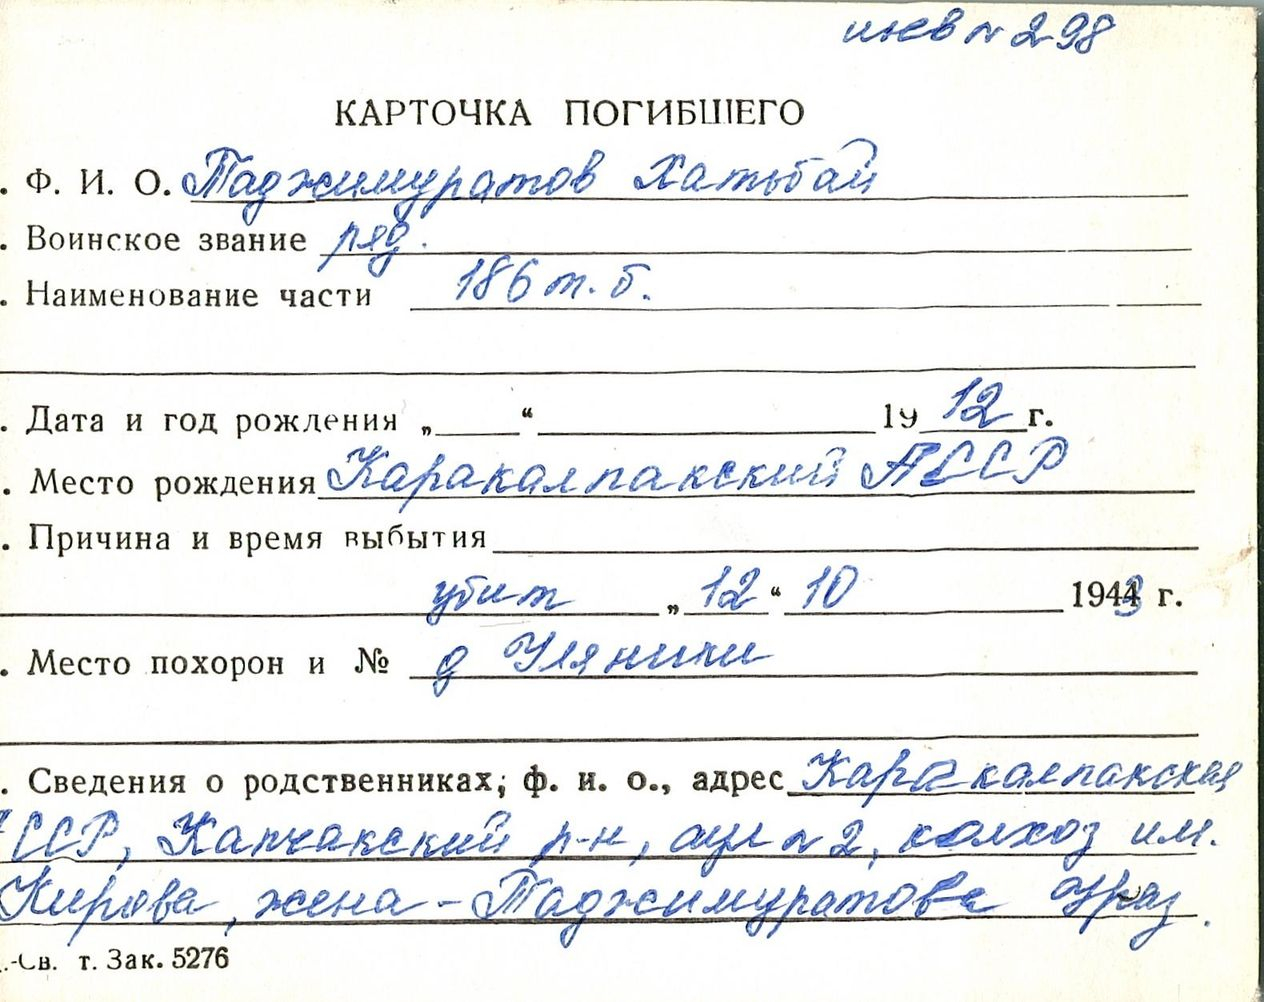 инв № 298
КАРТОЧКА ПОГИБШЕГО
. Ф. И. О. Таджимуратов Хатьбай
. Воинское звание ряд.
. Наименование части 186 т. б.
. Дата и год рождения „ “ 1912 г.
. Место рождения Каракалпакский АССР
. Причина и время выбытия
убит „12“ 10 1943 г.
. Место похорон и № д Уляники
. Сведения о родственниках; ф. и. о., адрес Каракалпакская
ССР, Капчакский р-н, аул № 2, колхоз им.
Кирова, жена - Таджимуратова Ураз.
.-Св. т. Зак. 5276